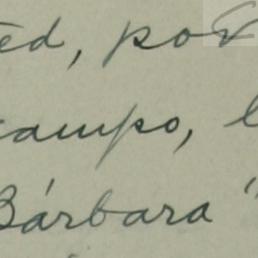 ted, por
campo, l
Bárbara"